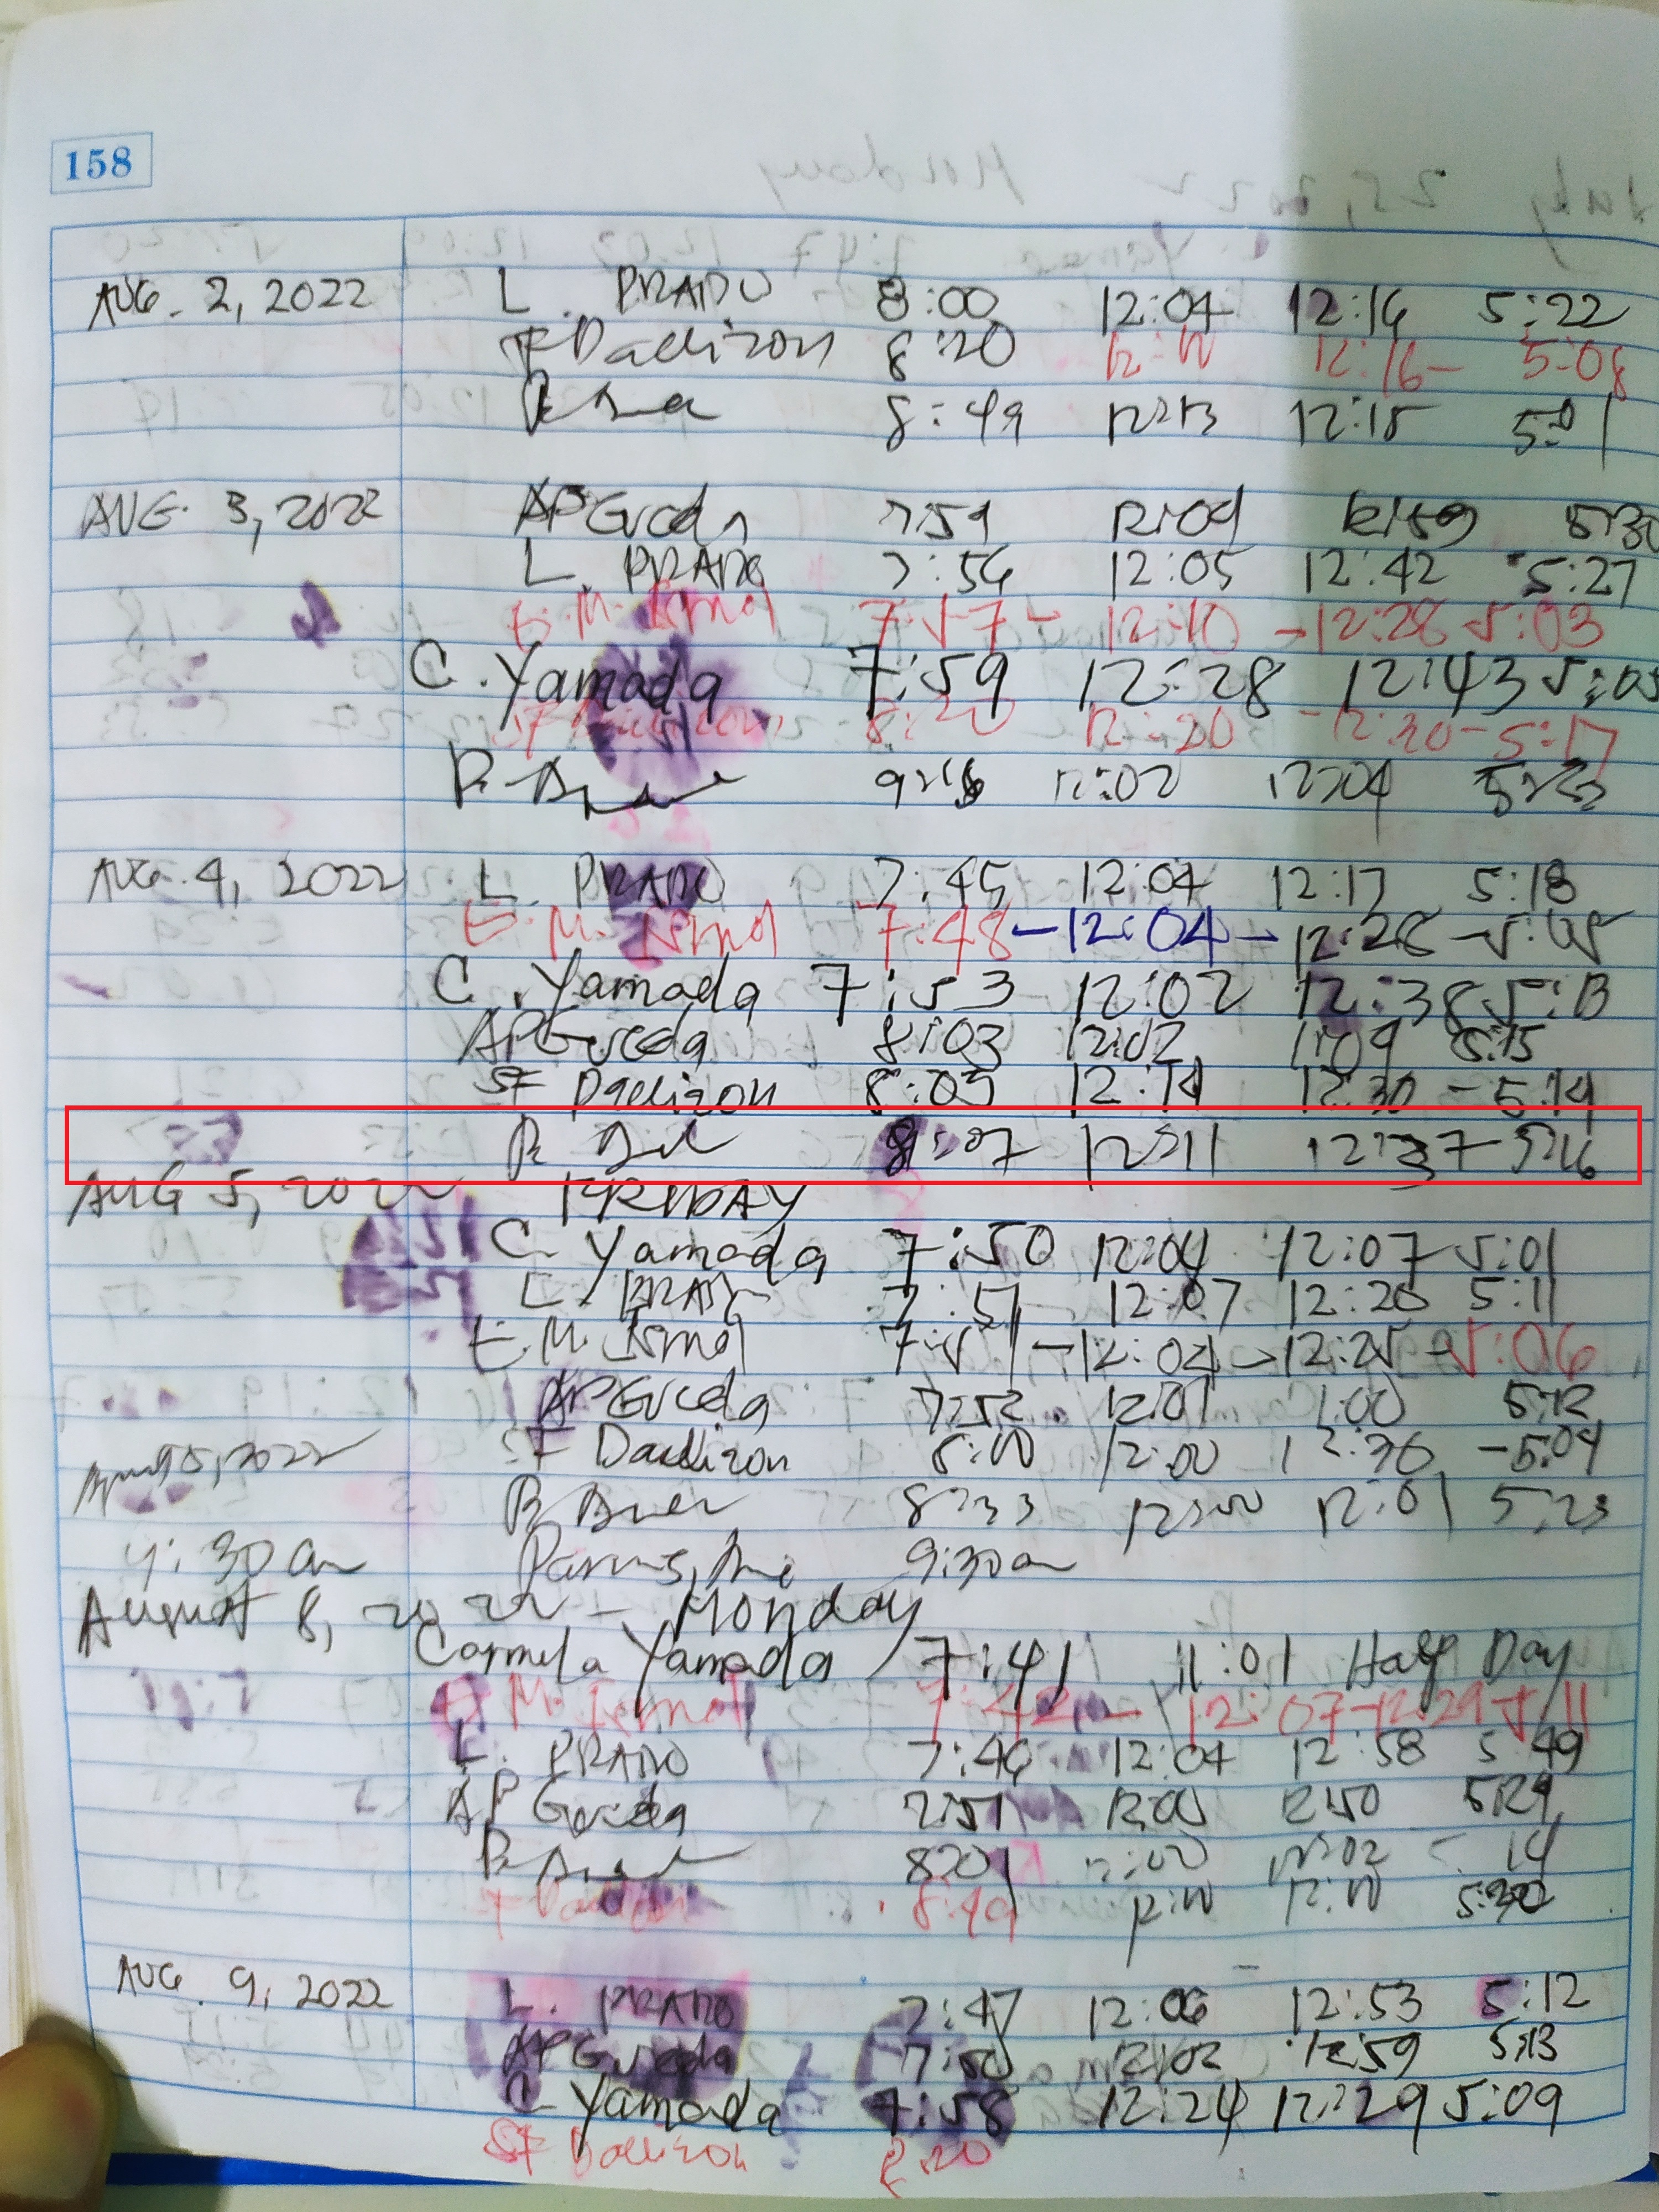 158
AUG. 2, 2022 L. PRADO 8:00 12:04 12:16 5:22
SF Daelizon 8:20 12:10 12:16- 5:08
R 8:49 12:13 12:15 5:01
AUG. 3, 2022 APGueda 7:59 12:09 12:59 5:30
L. PRADO 7:56 12:05 12:42 5:27
E.M. Ismal 7:57 - 12:10 - 12:28 5:03
C. Yamada 7:59 12:28 12:43 5:05
8:20 12:20 - 12:20 - 5:17
R. 12:02 12:04
AUG. 4, 2022 L. PRADO 7:45 12:04 12:17 5:18
E.M. Ismal 7:48 - 12:04 - 12:28 - 5:05
C. Yamada 7:53 12:02 12:38 5:13
APGueda 8:03 12:02 1:09 5:15
SF Daelizon 8:05 12:14 12:30 - 5:14
R 8:07 12:11 12:37 - 5:16
AUG 5, 2022 FRIDAY
C. Yamada 7:50 12:04 12:07 5:01
L. PRADO 7:51 12:07 12:20 5:11
E.M. Ismal 7:51 - 12:04 - 12:25 - 5:06
APGueda 7:52 12:01 1:00 5:12
SF Daelizon 8:00 12:00 12:30 - 5:04
5, 2022 R 8:33 12:00 12:01 5:23
9:30 am 9:30 am
August 8, 2022 - Monday
Carmela Yamada 7:41 11:01 Half Day
E.M. Ismal 7:42 - 12:07 - 12:29 5:11
L. PRADO 7:46 12:04 12:58 5:49
APGueda 7:51 12:05 12:50 5:29
R 8:01 12:00 12:02 14
8:49 12:10 12:10
AUG. 9, 2022 L. PRADO 7:47 12:06 12:53 5:12
APGueda 7:50 12:02 12:59 5:13
C. Yamada 7:58 12:24 12:29 5:09
SF Daelizon 8:20